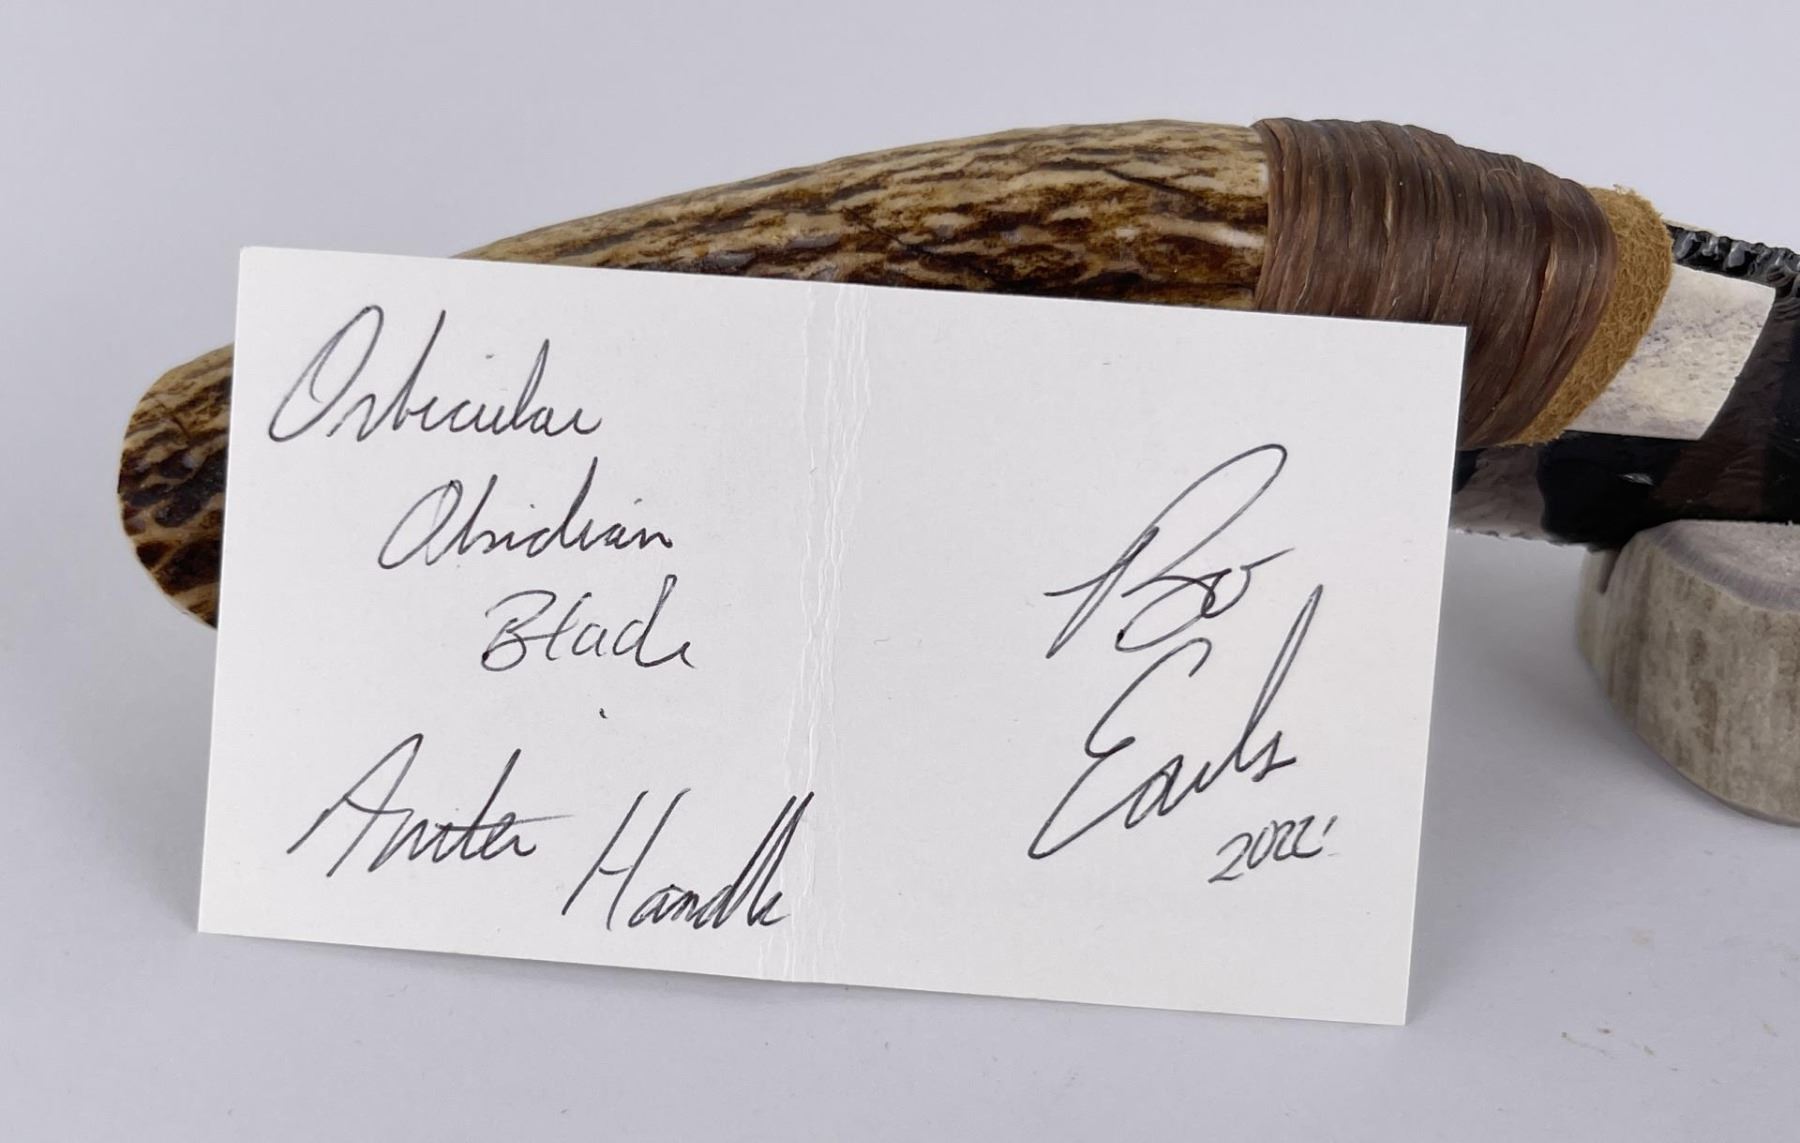 Orbicular
Obsidian
Blade
Antler Handle
Bo
Earls
2022'